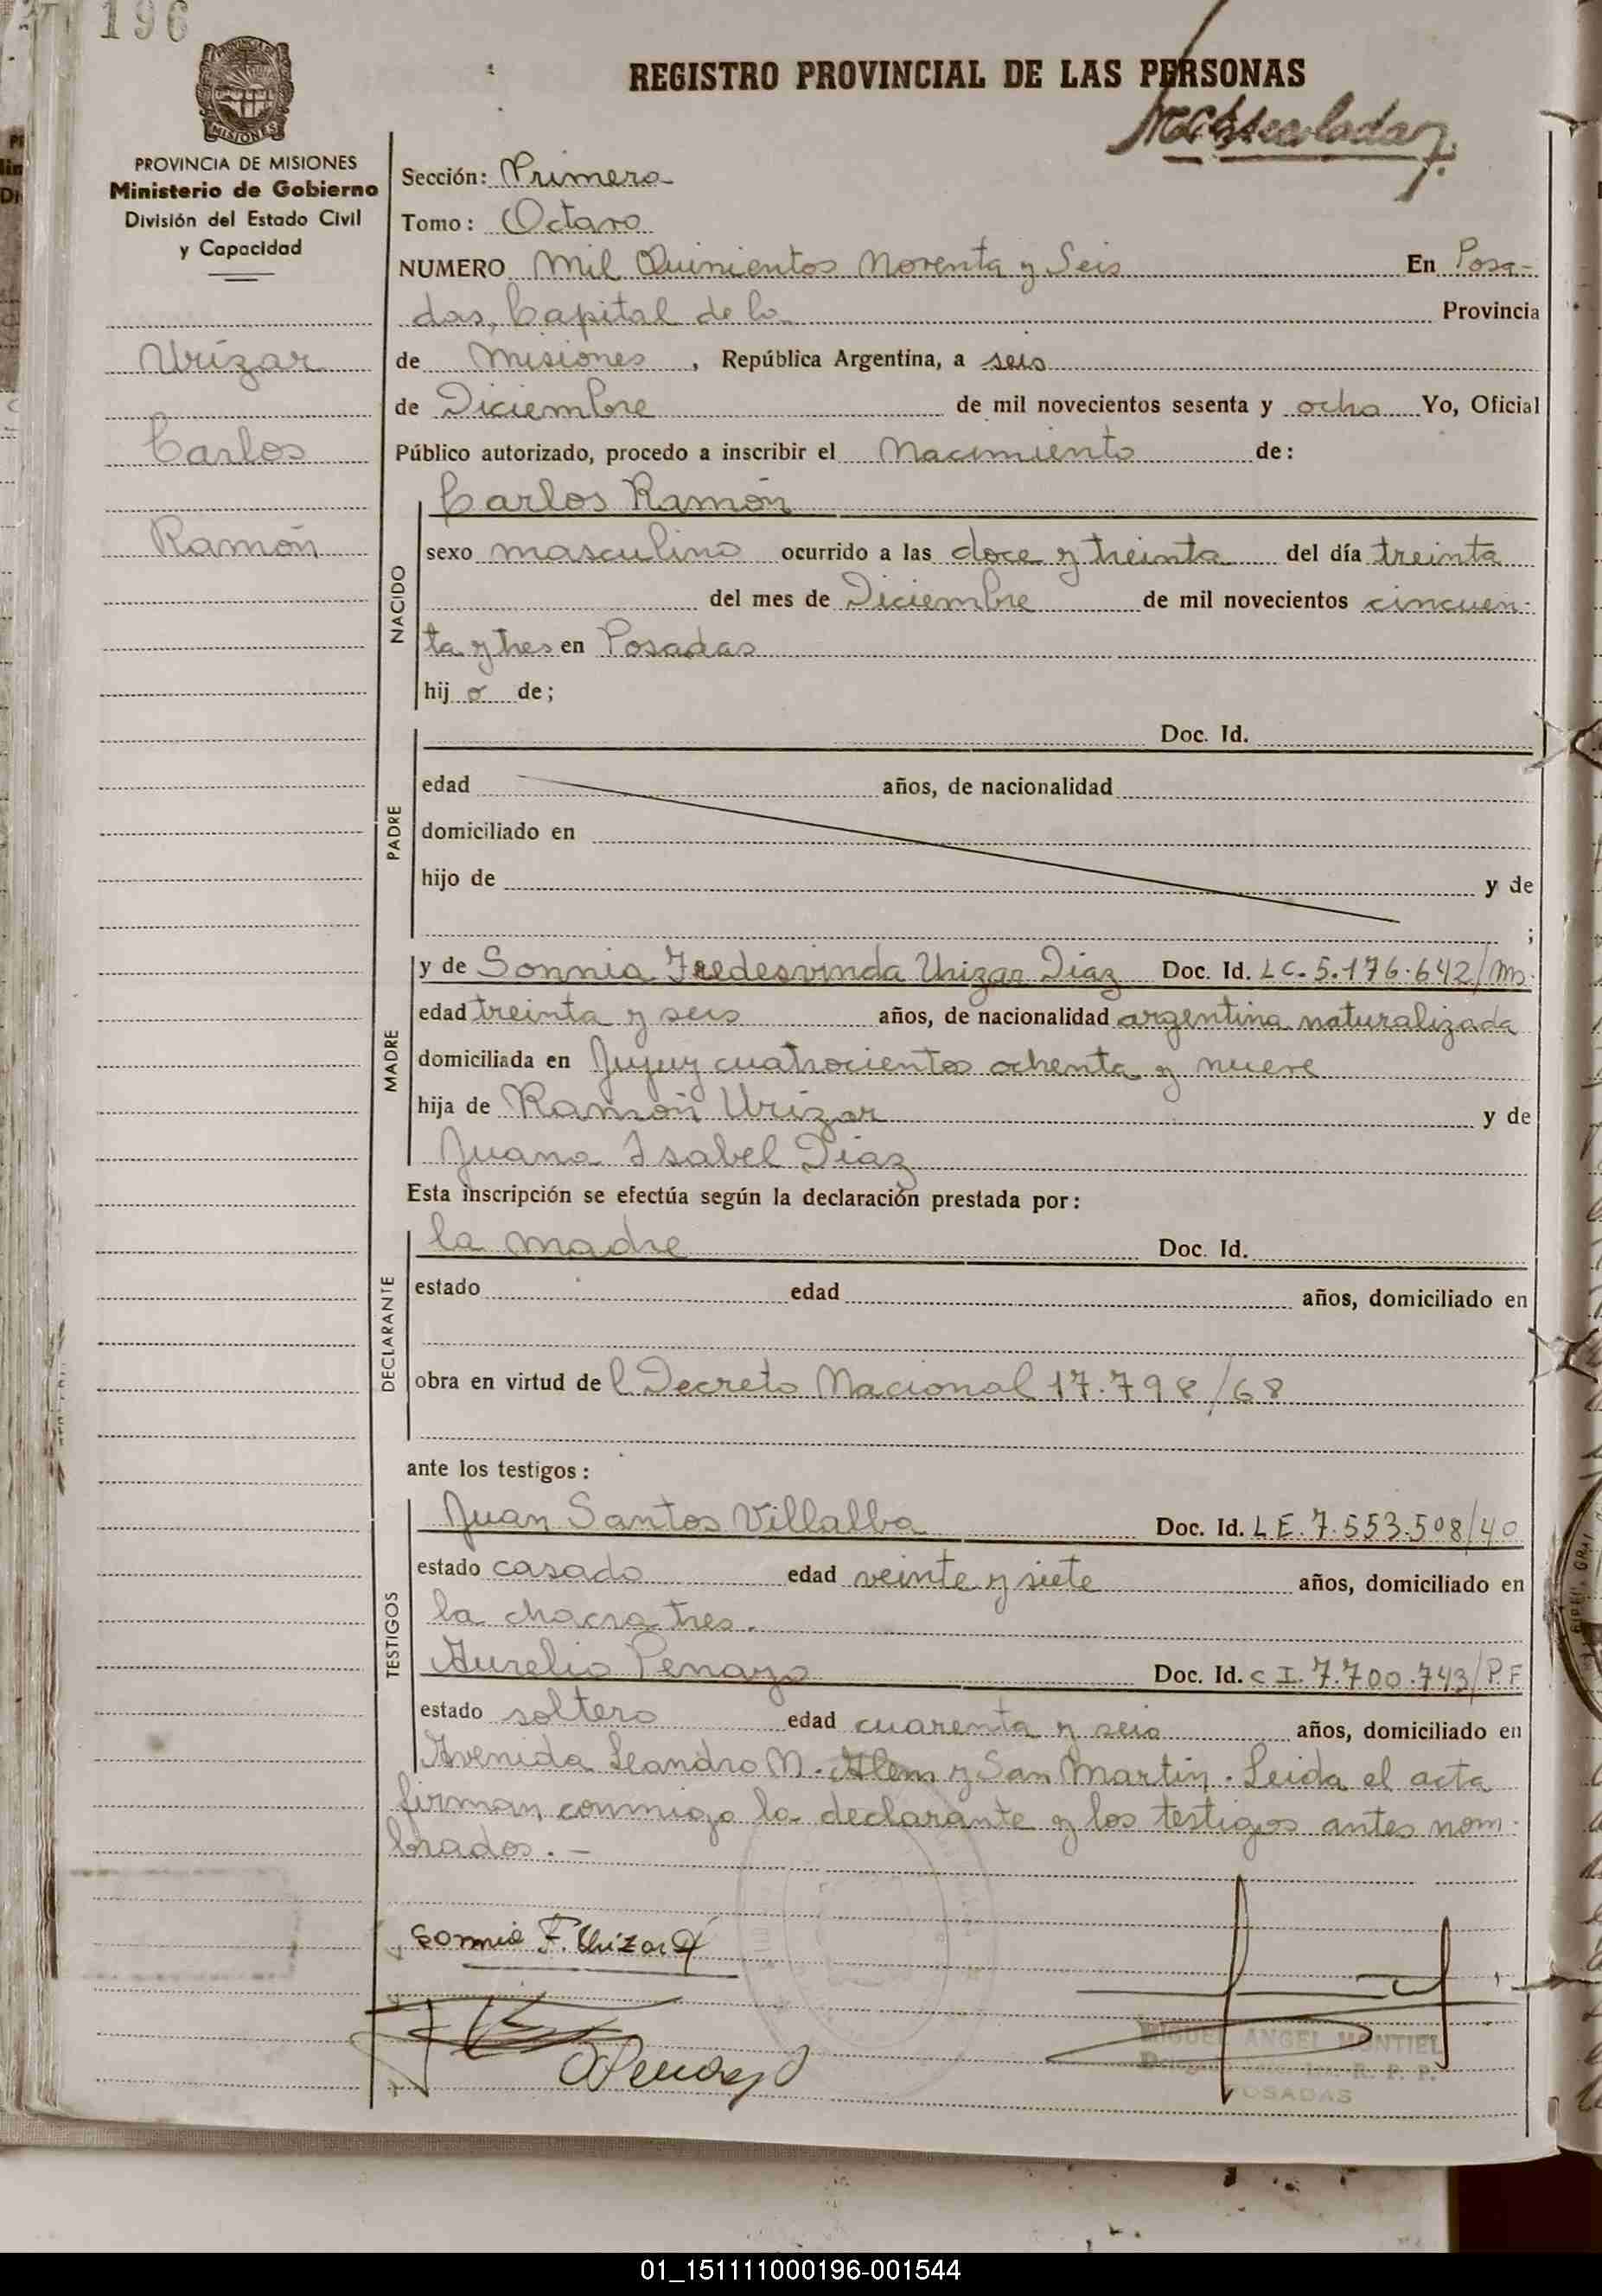 196
REGISTRO PROVINCIAL DE LAS PERSONAS
PROVINCIA DE MISIONES
Ministerio de Gobierno
División del Estado Civil
y Capacidad
Urízar
Carlos
Ramón
Sección: Primera
Tomo: Octavo
NUMERO Mil Quinientos Noventa y Seis En Posa-
das, Capital de la Provincia
de Misiones, República Argentina, a seis
de Diciembre de mil novecientos sesenta y ocho Yo, Oficial
Público autorizado, procedo a inscribir el Nacimiento de:
NACIDO
Carlos Ramón
sexo masculino ocurrido a las doce y treinta del día treinta
del mes de Diciembre de mil novecientos cincuen-
ta y tres en Posadas
hij o de;
PADRE
Doc. Id.
edad años, de nacionalidad
domiciliado en
hijo de y de
;
MADRE
y de Sonnia Fredesvinda Urizar Diaz Doc. Id. LC. 5.176.642/Ms.
edad treinta y seis años, de nacionalidad argentina naturalizada
domiciliada en Jujuy cuatrocientos ochenta y nueve
hija de Ramón Urízar y de
Juana Isabel Diaz
Esta inscripción se efectúa según la declaración prestada por:
DECLARANTE
la madre Doc. Id.
estado edad años, domiciliado en
obra en virtud de l Decreto Nacional 17.798/68
ante los testigos:
TESTIGOS
Juan Santos Villalba Doc. Id. L E. 7.553.508/40
estado casado edad veinte y siete años, domiciliado en
la chacra tres.
Aurelio Penayo Doc. Id. C I. 7.700.743/P.F
estado soltero edad cuarenta y seis años, domiciliado en
Avenida Leandro N. Alem y San Martin. Leida el acta
firman conmigo la declarante y los testigos antes nom-
brados. -
Sonnia F. Urízar D
APenayo
MIGUEL ANGEL MONTIEL
R. P. P.
POSADAS
01_151111000196-001544